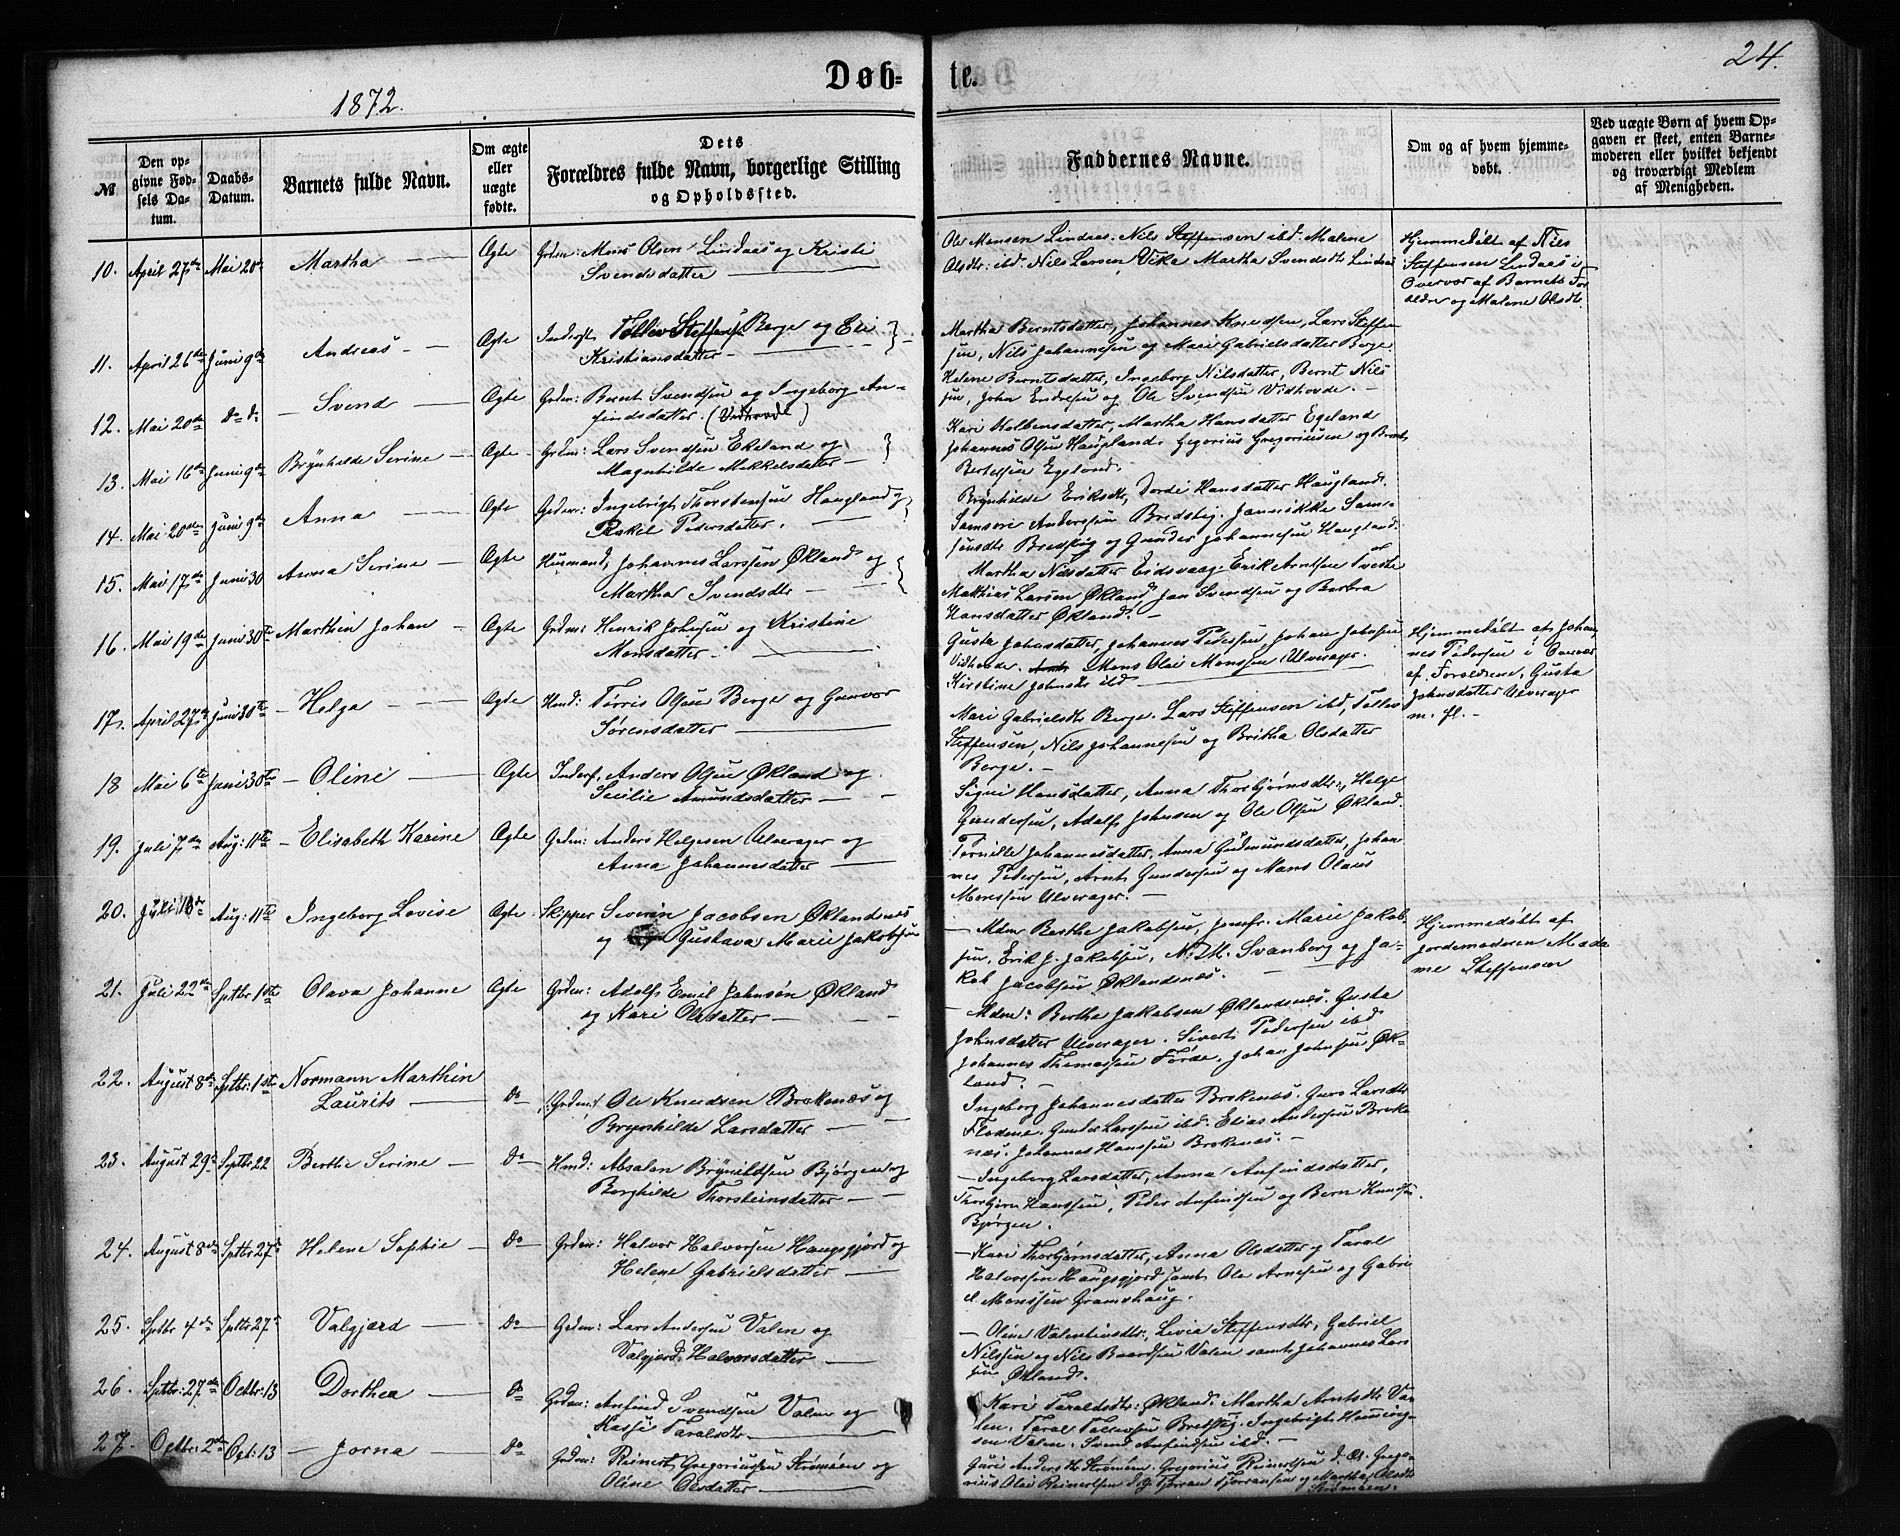 24.
Døb-
te.
1872.
№
Den op-
givne Fød-
sels Da-
tum.
Daabs-
Datum.
Barnets fulde Navn.
Om ægte
eller
uægte
fødte.
Dets
Forældres fulde Navn, borgerlige Stilling
og Opholdssted.
Faddernes Navne.
Om og af hvem hjemme-
døbt.
Ved uægte Børn af hvem Op-
gaven er skeet, enten Barne-
moderen eller hvilket bekjendt
og troværdigt Medlem
af Menigheden.
10. April 27de Mai 20de Martha Ægte Grdm: Mons Olsen Lindaas og Kristi
Svendsdatter
Ole Monsen Lindaas. Nils Steffensen ibd. Malene
Olsdtr: ibd. Nils Larsen Vika Martha Svendsdtr Lindaas
Hjemmedøbt af Nils
Steffensen Lindaas i
Overvær af Barnets For
ældre og Malene Olsdtr.
11. April 26de Juni 9de Andreas Ægte Inderst Tollev Steffens. Berge og Eli
Kristiansdatter
Martha Berntsdatter, Johannes Knudsen, Lars Steffen
sen, Nils Johannesen og Mari Gabrielsdatter Berge.
12. Mai 20de do do Svend Ægte Grdm: Bernt Svendsen og Ingeborg An-
findsdatter. (Vidhovde)
Helene Berntsdatter, Ingeborg Nilsdatter, Bernt Nils
sen, John Endresen og Ole Svendsen Vidhovde.
13. Mai 16de Juni 9de Brynhilde Serine Ægte Grdm: Lars Svendsen Ekeland og
Magnhilde Mikkelsdatter
Kari Kolbensdatter, Martha Hansdatter Egeland
Johannes Olsen Haugland. Gregorius Gregoriussen og Bernt
Bertelsen Egeland.
14. Mai 20de Juni 9de Anna Ægte Grdm: Ingebrigt Thorstensen Haugland og
Rakel Pedersdatter.
Brynhilde Eriksdtr, Dordi Hansdatter Haugland.
Samson Anderssen Bredsteg. Jannikke Sam-
sensdtr Bredsteg og Gunder Johannesen Haugland.
15. Mai 17de Juni 30 Anna Serine Ægte Husmand, Johannes Larssen Økland og
Martha Svendsdtr
Martha Nilsdatter Eidsvaag. Erik Arntsen Tveite
Mathias Larsen Økland Jan Svendsen og Barbra
Hansdatter Økland.
16. Mai 19de Juni 30te Marthin Johan Ægte Grdm: Henrik Johnsen og Kristine
Monsdatter
Gusta Johnsdatter, Johannes Pedersen, Johan Johnsen
Vidhovde. Mons Olai Monssen Ulverager.
Kirstine Johnsdtr ibd
Hjemmedøbt af Johan
nes Pedersen i Overvær
af Forældrene, Gusta
Johnsdatter Ulverager
m. fl.
17. April 27de Juni 30te Helga Ægte Hmd: Tørris Olsen Berge og Gunvor
Sørensdatter
Mari Gabrielsdtr Berge. Lars Steffensen ibd, Tollev
Steffensen, Nils Johannesen og Britha Olsdatter
Berge.
18 Mai 6te Juni 30te Oline Ægte Inderst, Anders Olsen Økland og
Secilie Amundsdatter
Signi Hansdatter, Anna Thorbjørnsdtr, Helge
Gundersen, Adolf Johnsen og Ole Olsen Økland.
19. Juli 7de Aug: 11te Elisabeth Karine Ægte Grdm: Anders Helgesen Ulverager og
Anna Johannesdatter
Pernille Johannesdatter, Anna Gudmundsdatter, Johan
nes Pedersen, Arnt Gundersen og Mons Olaus
Monssen Ulverager.
20. Juli 10de Aug: 11te Ingeborg Lovise Ægte Skipper Severin Jacobsen Øklandsnæs
og Gustava Marie Jakobsen
Mdm Berthe Jakobsen, Jomfr. Marie Jakob-
sen, Erik J. Jakobsen, N. Th. Svanberg og Ja-
kob Jacobsen Øklandsnæs.
Hjemmedøbt af
Jordemoderen Mada
me Steffensen
21. Juli 22de Septbr 1ste Olava Johanne Ægte Grdm: Adolf Emil Johnsen Økland
og Kari Olsdatter
Mdm: Bertha Jakobsen Øklandsnæs. Gusta
Johnsdatter Ulverager. Sivert Pedersen ibd
Johannes Thomassen Førde. Johan Johnsen Øk-
land.
22. August 8de Sptbr: 1ste Normann Marthin
Laurits Do Grdm: Ole Knudsen Brokenæs og
Brynhilde Larsdatter
Ingeborg Johannesdatter Brokenæs. Guro Larsdtr
Flodene. Gunder Larssen ibd. Elias Andersen Broke
næs. Johannes Hanssen Brokenæs.
23. August 29de Septbr 22 Berthe Serine Do Hmd: Absalon Brynildsen Bjørgen og
Borghilde Thorsteinsdatter
Ingeborg Larsdatter, Anna Anfindsdatter,
Thorbjørn Hanssen, Peder Anfindsen og Bern Knudsen
Bjørgen.
24. August 8de Sptbr 27de Helene Sophie Do Grdm: Halvor Halvorsen Haugsgjerd og
Helene Gabrielsdatter
Kari Thorbjørnsdatter, Anna Olsdatter og Taral
Halvorssen Haugsgjerd samt Ole Arnesen og Gabri
el Monssen Gramshaug.
25. Sptbr 4de Sptbr 27de Valgjerd Do Grdm: Lars Andersen Valen og
Valgjerd Halvorsdatter
Oline Valentinsdtr, Livia Steffensdtr, Gabriel
Nilssen og Nils Baardsen Valen samt Johannes Lars
sen Økland.
26. Sptbr: 27de Octbr: 13 Dorthea Do Grdm: Anfind Svendsen Valen og
Kasje Taralsdtr
Kari Taraldsdtr: Økland. Martha Arntsdtr Va-
len. Taral Tollevsen Bredsteg. Ingebrigt Henning-
sen Valen. Svend Anfindsen ibd.
27. Octbr: 2den Oct: 13 Jorna Do Grdm: Reinert Gregoriussen Strømøen og
Oline Olsdatter
Guri Andersdtr Strømøen. Gregorius Reinertsen d. Æ. Grego-
rius Olai Reinertsen d. y. Tjerran Tjerransen og Martha Olsdtr
Strømøen.